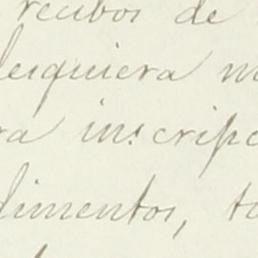 recibos de
lesquiera m
ra inscripc
dimentos, to